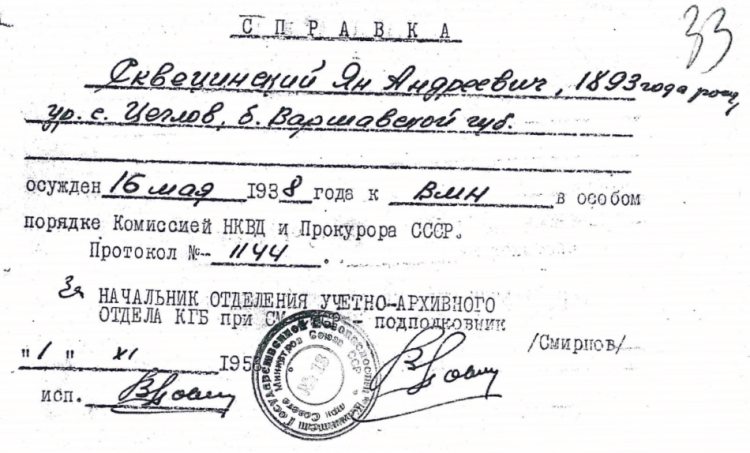 СПРАВКА
33
Сквецинский Ян Андреевич, 1893 года рожд,
ур. с. Цеглов, б. Варшавской губ.
осужден 16 мая 1938 года к ВМН в особом
порядке Комиссией НКВД и Прокурора СССР.
Протокол № 1144.
За НАЧАЛЬНИК ОТДЕЛЕНИЯ УЧЕТНО-АРХИВНОГО
ОТДЕЛА КГБ при СМ СССР - подполковник
/Смирнов/
"1" XI 195
исп.
Комитет Государственной Безопасности
при Совете Министров Союза ССР